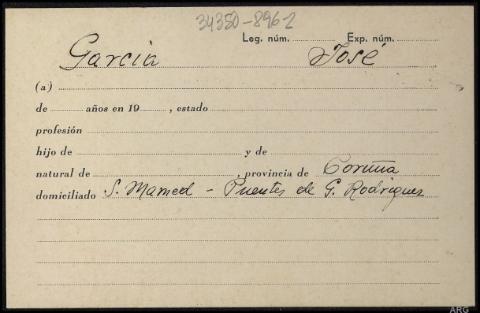 34350-8962
Leg. núm. Exp. núm.
García José
(a)
de años en 19 , estado
profesión
hijo de y de
natural de , provincia de Coruña
domiciliado S. Mamed - Puentes de G. Rodríguez
ARG